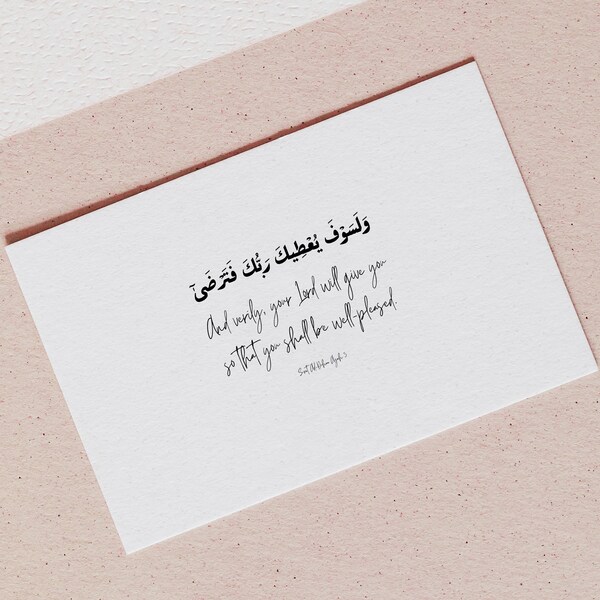 وَلَسَوْفَ يُعْطِيكَ رَبُّكَ فَتَرْضَىٰٓ
And verily, your Lord will give you
so that you shall be well-pleased.